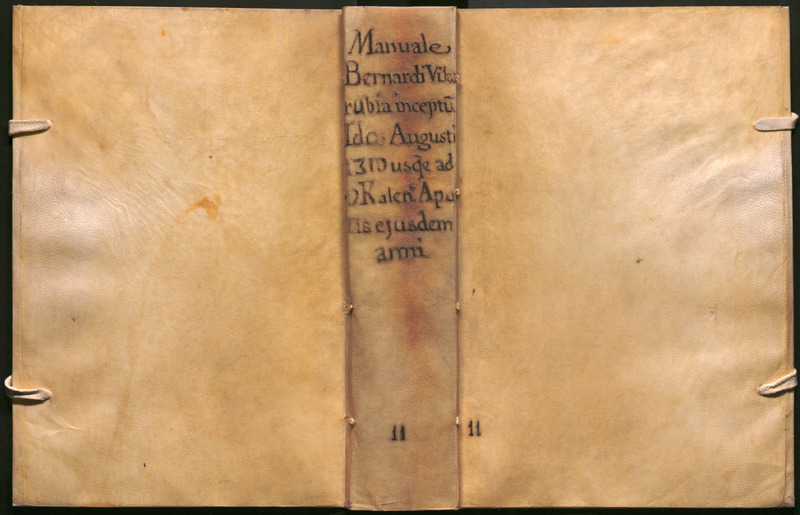 Manuale
Bernardi Vila
rubia inceptū
Idos Augusti
usqe ad
Kalen Apri
lis ejusdem
anni
11
11